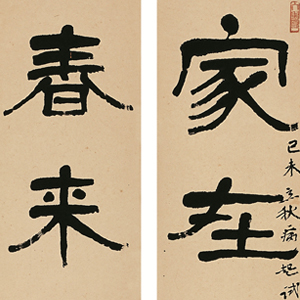 家在
己未立秋病起试
春来